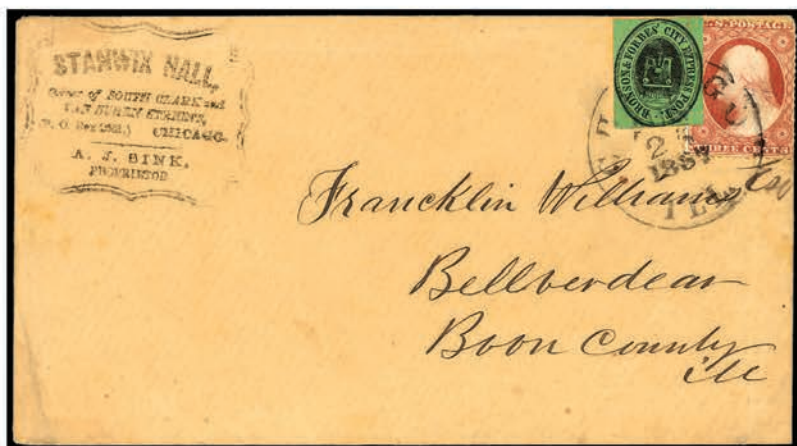 STANWIX HALL,
Corner of SOUTH CLARK and
VAN BUREN STREETS,
CHICAGO.
A. J. SINK,
PROPRIETOR
BRONSON & FORBES' CITY EXPRESS POST
U.S. POSTAGE
THREE CENTS
2
ILL
Francklin Williams
Bellverdear
Boon County
ill